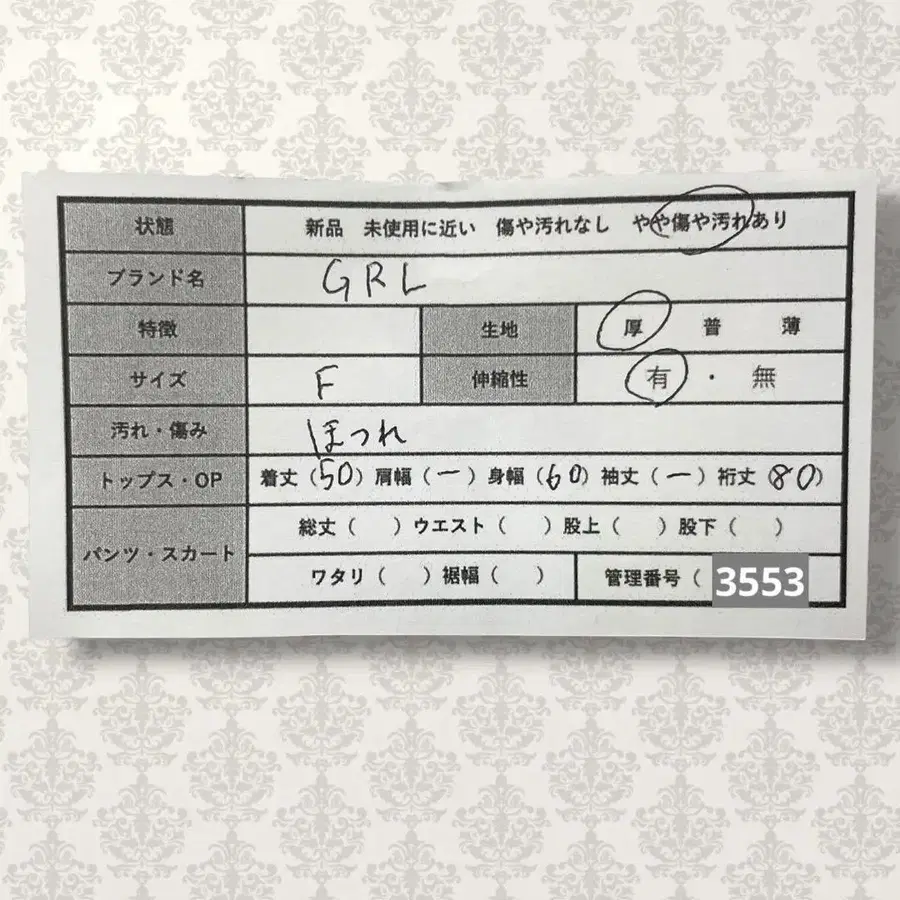 状態 新品 未使用に近い 傷や汚れなし やや傷や汚れあり
ブランド名 GRL
特徴 生地 厚 普 薄
サイズ F 伸縮性 有 ・ 無
汚れ・傷み ほつれ
トップス・OP 着丈（50）肩幅（ー）身幅（60）袖丈（ー）裄丈（80）
パンツ・スカート 総丈（ ）ウエスト（ ）股上（ ）股下（ ）
ワタリ（ ）裾幅（ ） 管理番号（ 3553